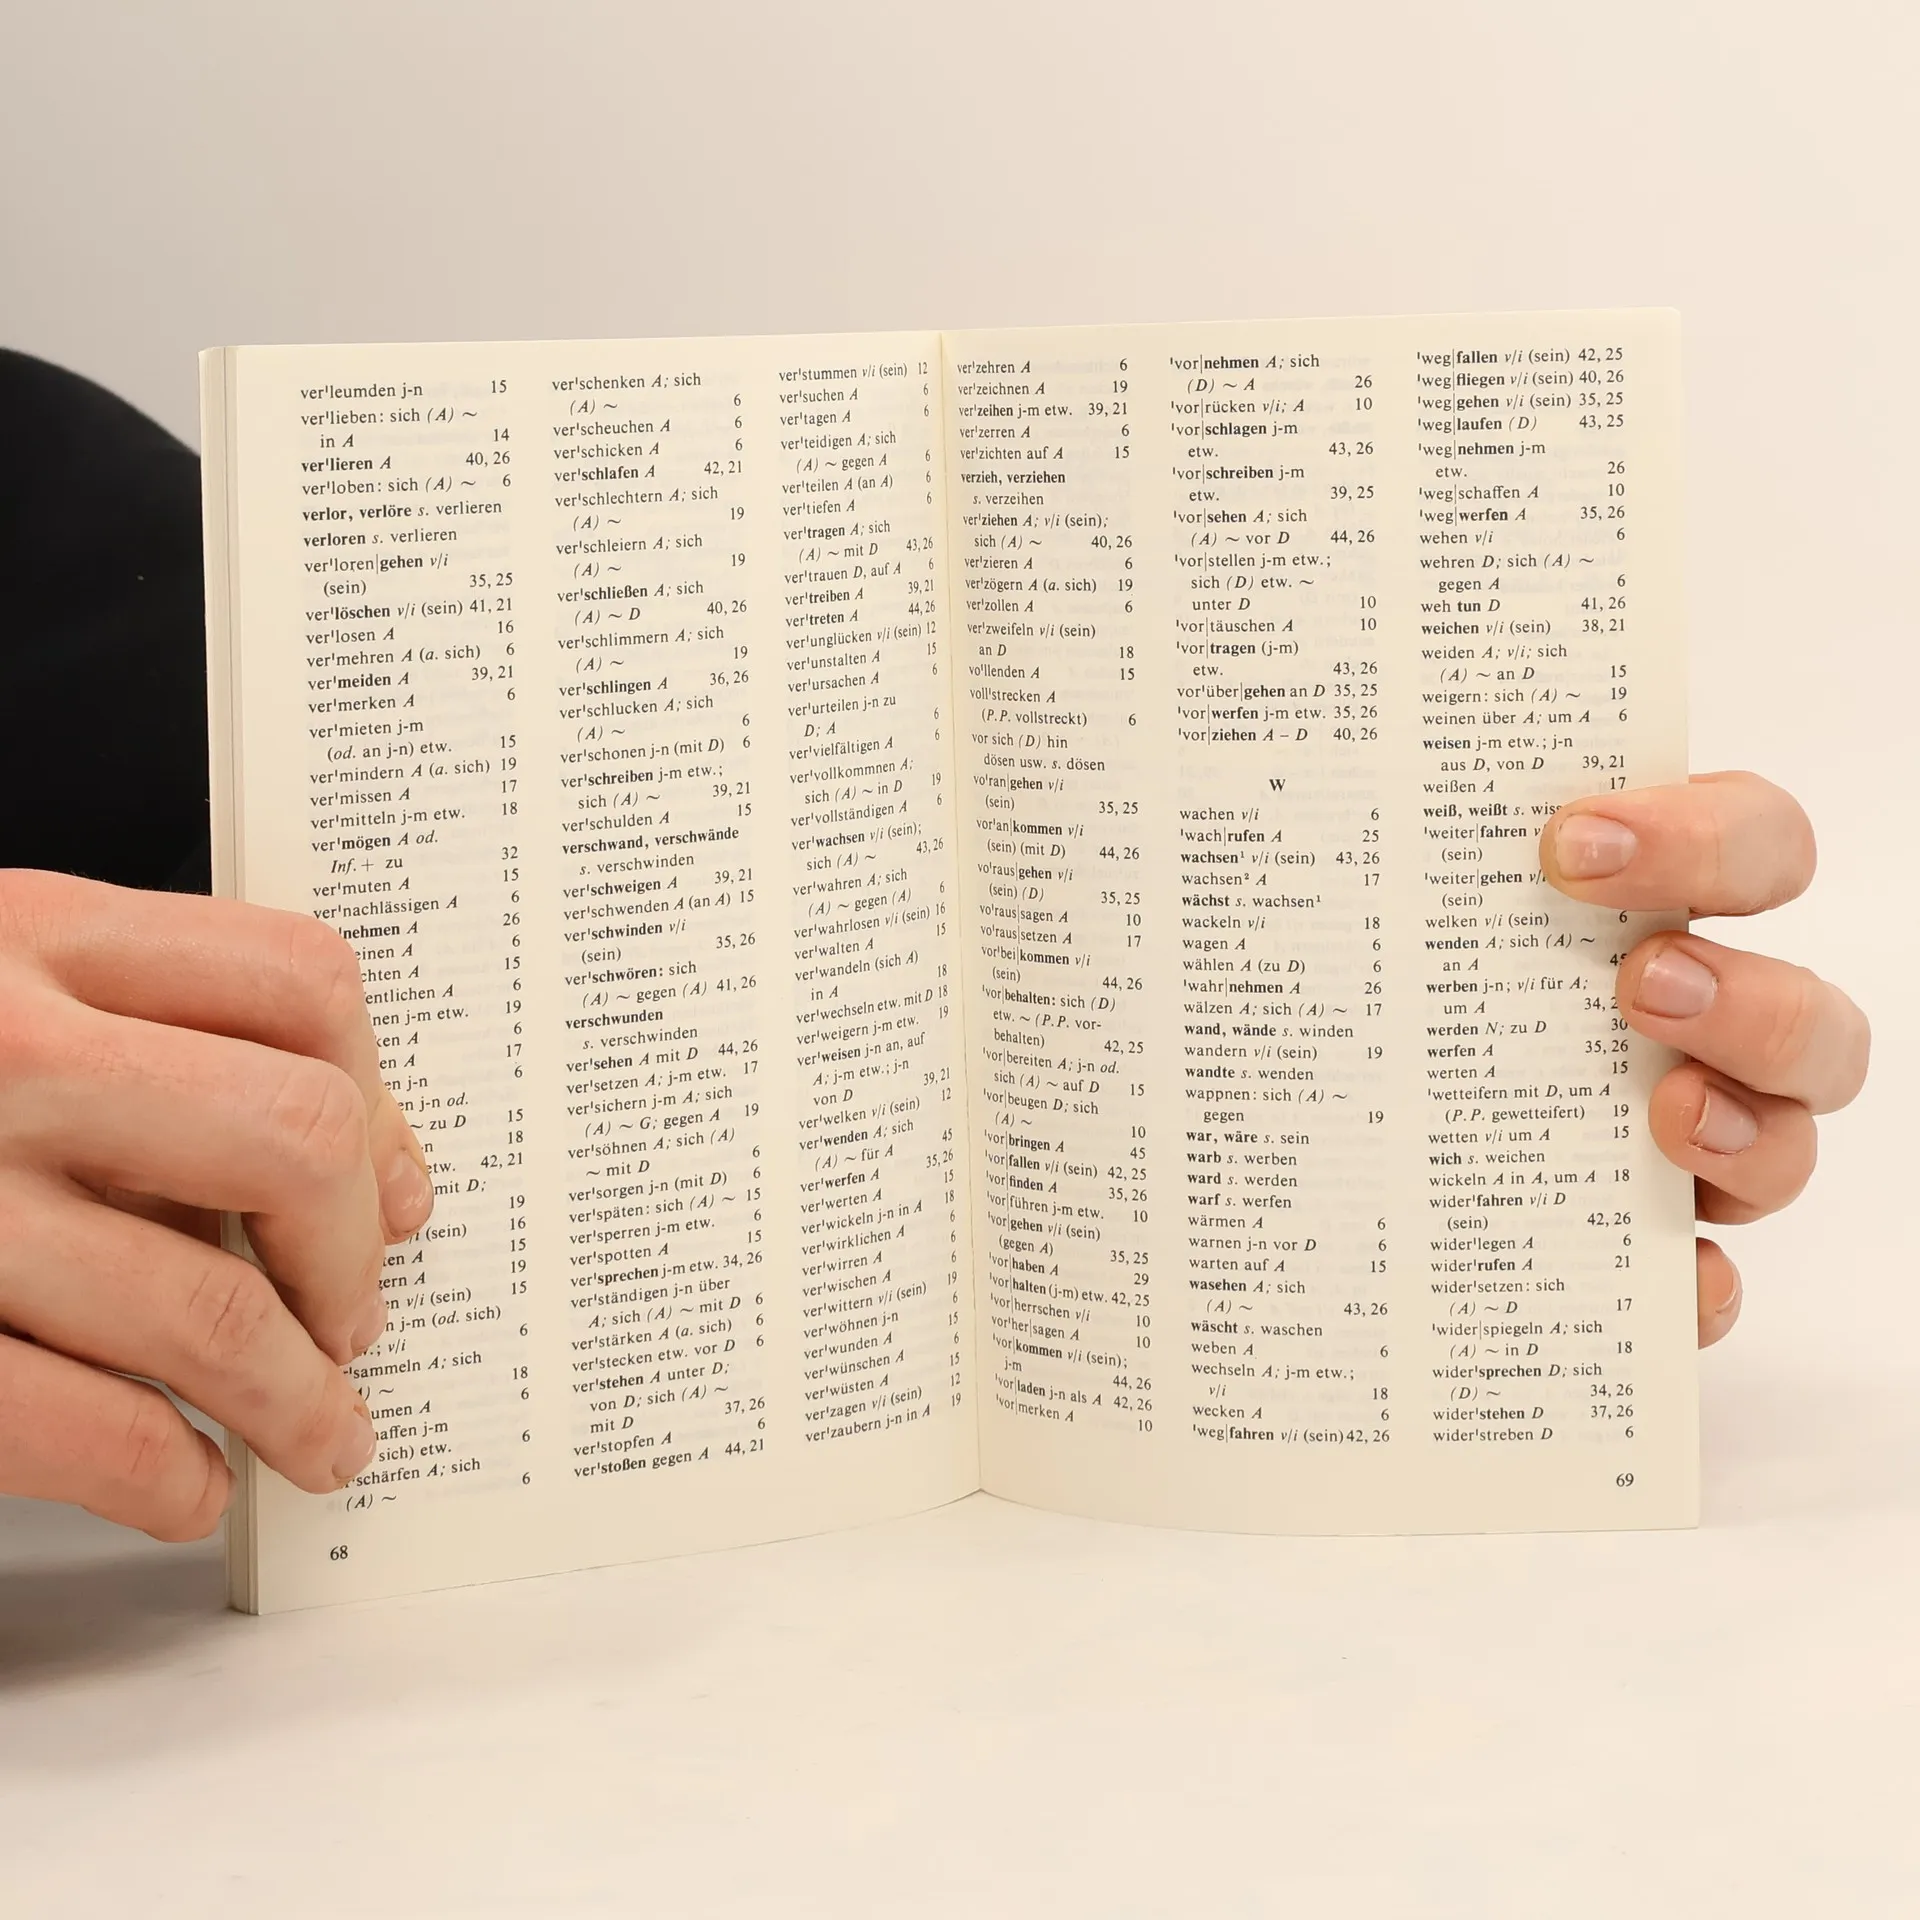 ver'leumden j-n 15
ver'lieben: sich (A) ~
in A 14
ver'lieren A 40, 26
ver'loben: sich (A) ~ 6
verlor, verlöre s. verlieren
verloren s. verlieren
ver'loren|gehen v/i
(sein) 35, 25
ver'löschen v/i (sein) 41, 21
ver'losen A 16
ver'mehren A (a. sich) 6
ver'meiden A 39, 21
ver'merken A 6
ver'mieten j-m
(od. an j-n) etw. 15
ver'mindern A (a. sich) 19
ver'missen A 17
ver'mitteln j-m etw. 18
ver'mögen A od.
Inf. + zu 32
ver'muten A 15
ver'nachlässigen A 6
'nehmen A 26
einen A 6
chten A 15
entlichen A 6
nen j-m etw. 19
ken A 6
en A 17
en j-n 6
en j-n od.
~ zu D 15
n 18
etw. 42, 21
mit D;
19
(sein) 16
ten A 15
gern A 19
en v/i (sein) 15
n j-m (od. sich)
; v/i 6
'sammeln A; sich
~ 18
umen A 6
haffen j-m
sich) etw. 6
'schärfen A; sich
(A) ~ 6
68
ver'schenken A; sich
(A) ~ 6
ver'scheuchen A 6
ver'schicken A 6
ver'schlafen A 42, 21
ver'schlechtern A; sich
(A) ~ 19
ver'schleiern A; sich
(A) ~ 19
ver'schließen A; sich
(A) ~ D 40, 26
ver'schlimmern A; sich
(A) ~ 19
ver'schlingen A 36, 26
ver'schlucken A; sich
(A) ~ 6
ver'schonen j-n (mit D) 6
ver'schreiben j-m etw.;
sich (A) ~ 39, 21
ver'schulden A 15
verschwand, verschwände
s. verschwinden
ver'schweigen A 39, 21
ver'schwenden A (an A) 15
ver'schwinden v/i
(sein) 35, 26
ver'schwören: sich
(A) ~ gegen (A) 41, 26
verschwunden
s. verschwinden
ver'sehen A mit D 44, 26
ver'setzen A; j-m etw. 17
ver'sichern j-m A; sich
(A) ~ G; gegen A 19
ver'söhnen A; sich (A)
~ mit D 6
ver'sorgen j-n (mit D) 6
ver'späten: sich (A) ~ 15
ver'sperren j-m etw. 6
ver'spotten A 15
ver'sprechen j-m etw. 34, 26
ver'ständigen j-n über
A; sich (A) ~ mit D 6
ver'stärken A (a. sich) 6
ver'stecken etw. vor D 6
ver'stehen A unter D;
von D; sich (A) ~
mit D 37, 26
ver'stopfen A 6
ver'stoßen gegen A 44, 21
ver'stummen v/i (sein) 12
ver'suchen A 6
ver'tagen A 6
ver'teidigen A; sich
(A) ~ gegen A 6
ver'teilen A (an A) 6
ver'tiefen A 6
ver'tragen A; sich
(A) ~ mit D 43, 26
ver'trauen D, auf A 6
ver'treiben A 39, 21
ver'treten A 44, 26
ver'unglücken v/i (sein) 12
ver'unstalten A 15
ver'ursachen A 6
ver'urteilen j-n zu
D; A 6
ver'vielfältigen A 6
ver'vollkommnen A;
sich (A) ~ in D 19
ver'vollständigen A 6
ver'wachsen v/i (sein);
sich (A) ~ 43, 26
ver'wahren A; sich
(A) ~ gegen (A) 6
ver'wahrlosen v/i (sein) 16
ver'walten A 15
ver'wandeln (sich A)
in A 18
ver'wechseln etw. mit D 18
ver'weigern j-m etw. 19
ver'weisen j-n an, auf
A; j-m etw.; j-n
von D 39, 21
ver'welken v/i (sein) 12
ver'wenden A; sich
(A) ~ für A 45
ver'werfen A 35, 26
ver'werten A 15
ver'wickeln j-n in A 18
ver'wirklichen A 6
ver'wirren A 6
ver'wischen A 6
ver'wittern v/i (sein) 19
ver'wöhnen j-n 6
ver'wunden A 15
ver'wünschen A 6
ver'wüsten A 15
ver'zagen v/i (sein) 12
ver'zaubern j-n in A 19
ver'zehren A 6
ver'zeichnen A 19
ver'zeihen j-m etw. 39, 21
ver'zerren A 6
ver'zichten auf A 15
verzieh, verziehen
s. verzeihen
ver'ziehen A; v/i (sein);
sich (A) ~ 40, 26
ver'zieren A 6
ver'zögern A (a. sich) 19
ver'zollen A 6
ver'zweifeln v/i (sein)
an D 18
vo'llenden A 15
voll'strecken A
(P.P. vollstreckt) 6
vor sich (D) hin
dösen usw. s. dösen
vo'ran|gehen v/i
(sein) 35, 25
vor'an|kommen v/i
(sein) (mit D) 44, 26
vo'raus|gehen v/i
(sein) (D) 35, 25
vo'raus|sagen A 10
vo'raus|setzen A 17
vor'bei|kommen v/i
(sein) 44, 26
'vor|behalten: sich (D)
etw. ~ (P.P. vor-
behalten) 42, 25
'vor|bereiten A; j-n od.
sich (A) ~ auf D 15
'vor|beugen D; sich
(A) ~ 10
'vor|bringen A 45
'vor|fallen v/i (sein) 42, 25
'vor|finden A 35, 26
'vor|führen j-m etw. 10
'vor|gehen v/i (sein)
(gegen A) 35, 25
'vor|haben A 29
'vor|halten (j-m) etw. 42, 25
'vor|herrschen v/i 10
'vor'her|sagen A 10
'vor|kommen v/i (sein);
j-m 44, 26
'vor|laden j-n als A 42, 26
'vor|merken A 10
'vor|nehmen A; sich
(D) ~ A 26
'vor|rücken v/i; A 10
'vor|schlagen j-m
etw. 43, 26
'vor|schreiben j-m
etw. 39, 25
'vor|sehen A; sich
(A) ~ vor D 44, 26
'vor|stellen j-m etw.;
sich (D) etw. ~
unter D 10
'vor|täuschen A 10
'vor|tragen (j-m)
etw. 43, 26
vor'über|gehen an D 35, 25
'vor|werfen j-m etw. 35, 26
'vor|ziehen A – D 40, 26
W
wachen v/i 6
'wach|rufen A 25
wachsen¹ v/i (sein) 43, 26
wachsen² A 17
wächst s. wachsen¹
wackeln v/i 18
wagen A 6
wählen A (zu D) 6
'wahr|nehmen A 26
wälzen A; sich (A) ~ 17
wand, wände s. winden
wandern v/i (sein) 19
wandte s. wenden
wappnen: sich (A) ~
gegen 19
war, wäre s. sein
warb s. werben
ward s. werden
warf s. werfen
wärmen A 6
warnen j-n vor D 6
warten auf A 15
wasehen A; sich
(A) ~ 43, 26
wäscht s. waschen
weben A 6
wechseln A; j-m etw.;
v/i 18
wecken A 6
'weg|fahren v/i (sein) 42, 26
'weg|fallen v/i (sein) 42, 25
'weg|fliegen v/i (sein) 40, 26
'weg|gehen v/i (sein) 35, 25
'weg|laufen (D) 43, 25
'weg|nehmen j-m
etw. 26
'weg|schaffen A 10
'weg|werfen A 35, 26
wehen v/i 6
wehren D; sich (A) ~
gegen A 6
weh tun D 41, 26
weichen v/i (sein) 38, 21
weiden A; v/i; sich
(A) ~ an D 15
weigern: sich (A) ~ 19
weinen über A; um A 6
weisen j-m etw.; j-n
aus D, von D 39, 21
weißen A 17
weiß, weißt s. wiss
'weiter|fahren v
(sein)
'weiter|gehen v/
(sein)
welken v/i (sein) 6
wenden A; sich (A) ~
an A 45
werben j-n; v/i für A;
um A 34, 2
werden N; zu D 30
werfen A 35, 26
werten A 15
'wetteifern mit D, um A
(P.P. gewetteifert) 19
wetten v/i um A 15
wich s. weichen
wickeln A in A, um A 18
wider'fahren v/i D
(sein) 42, 26
wider'legen A 6
wider'rufen A 21
wider'setzen: sich
(A) ~ D 17
'wider|spiegeln A; sich
(A) ~ in D 18
wider'sprechen D; sich
(D) ~ 34, 26
wider'stehen D 37, 26
wider'streben D 6
69